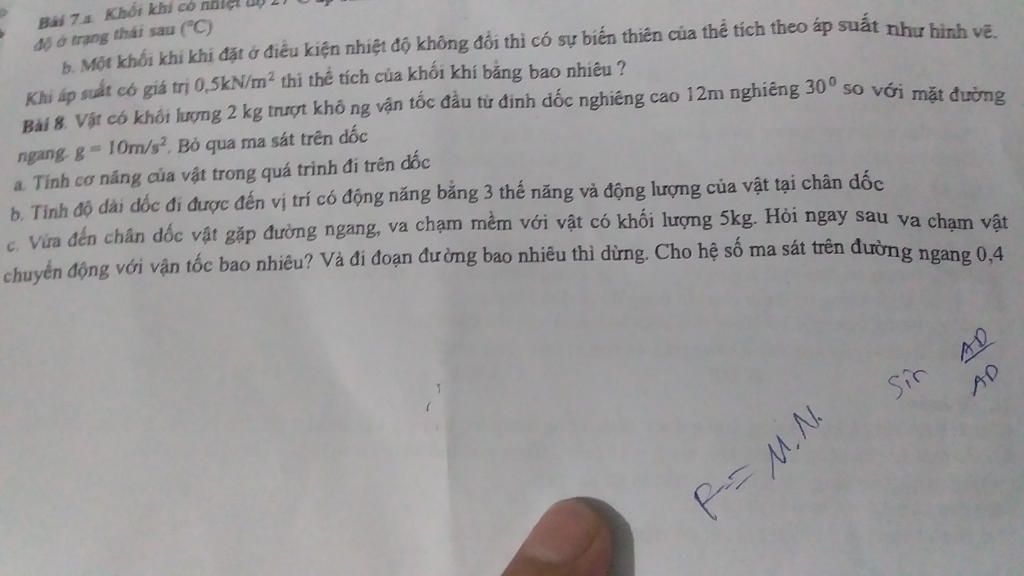 Bài 7.a. Khối khí có nhiệt độ 27°C áp
độ ở trạng thái sau (°C)
b. Một khối khí khi đặt ở điều kiện nhiệt độ không đổi thì có sự biến thiên của thể tích theo áp suất như hình vẽ.
Khi áp suất có giá trị 0,5kN/m² thì thể tích của khối khí bằng bao nhiêu ?
Bài 8. Vật có khối lượng 2 kg trượt khô ng vận tốc đầu từ đỉnh dốc nghiêng cao 12m nghiêng 30⁰ so với mặt đường
ngang. g = 10m/s². Bỏ qua ma sát trên dốc
a. Tính cơ năng của vật trong quá trình đi trên dốc
b. Tính độ dài dốc đi được đến vị trí có động năng bằng 3 thế năng và động lượng của vật tại chân dốc
c. Vừa đến chân dốc vật gặp đường ngang, va chạm mềm với vật có khối lượng 5kg. Hỏi ngay sau va chạm vật
chuyển động với vận tốc bao nhiêu? Và đi đoạn đường bao nhiêu thì dừng. Cho hệ số ma sát trên đường ngang 0,4
sin AD
AD
F = M.N.